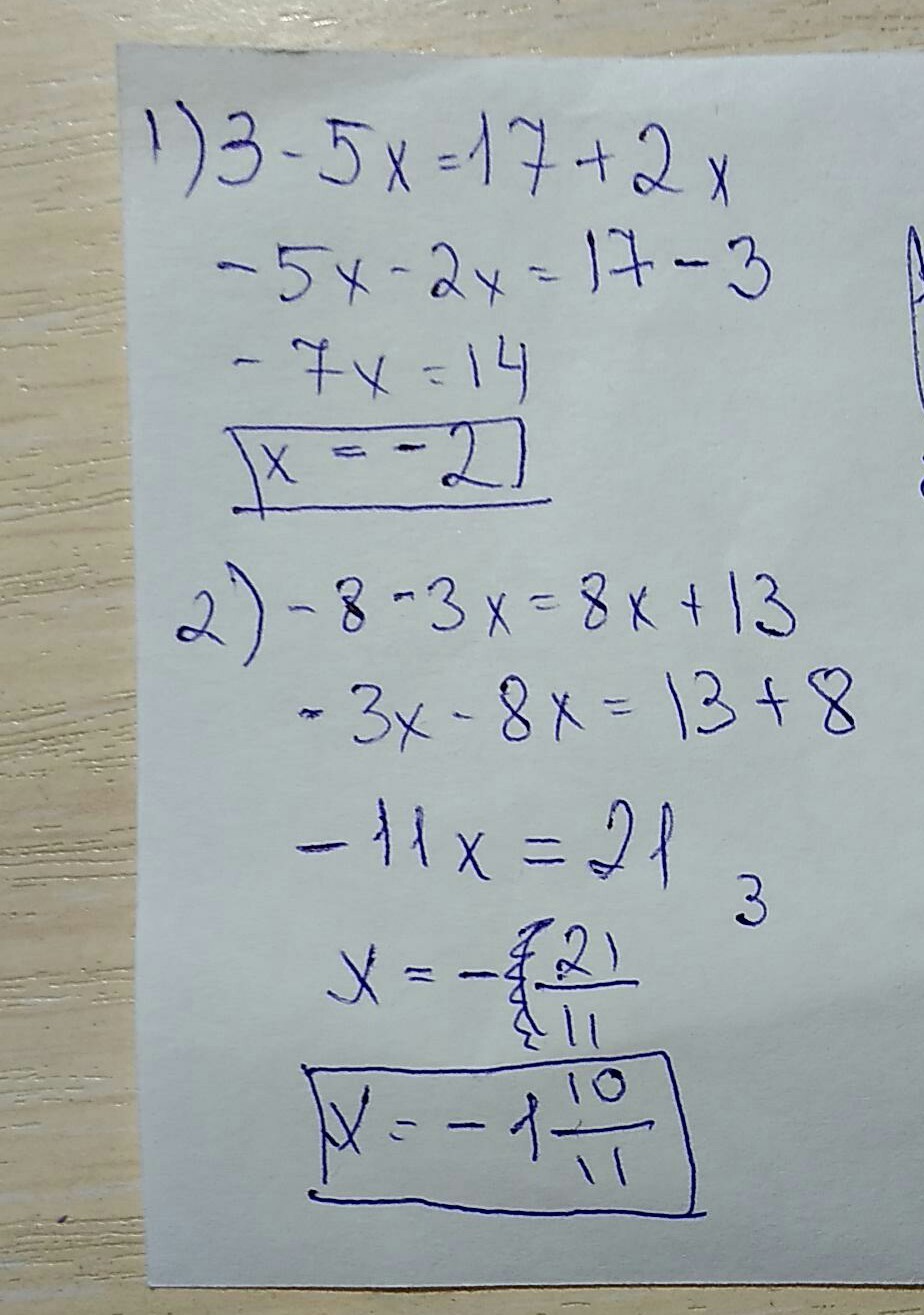 1) 3 - 5x = 17 + 2x
- 5x - 2x = 17 - 3
- 7x = 14
x = - 2
2) - 8 - 3x = 8x + 13
- 3x - 8x = 13 + 8
- 11x = 21
3
x = - 21/11
x = - 1 10/11